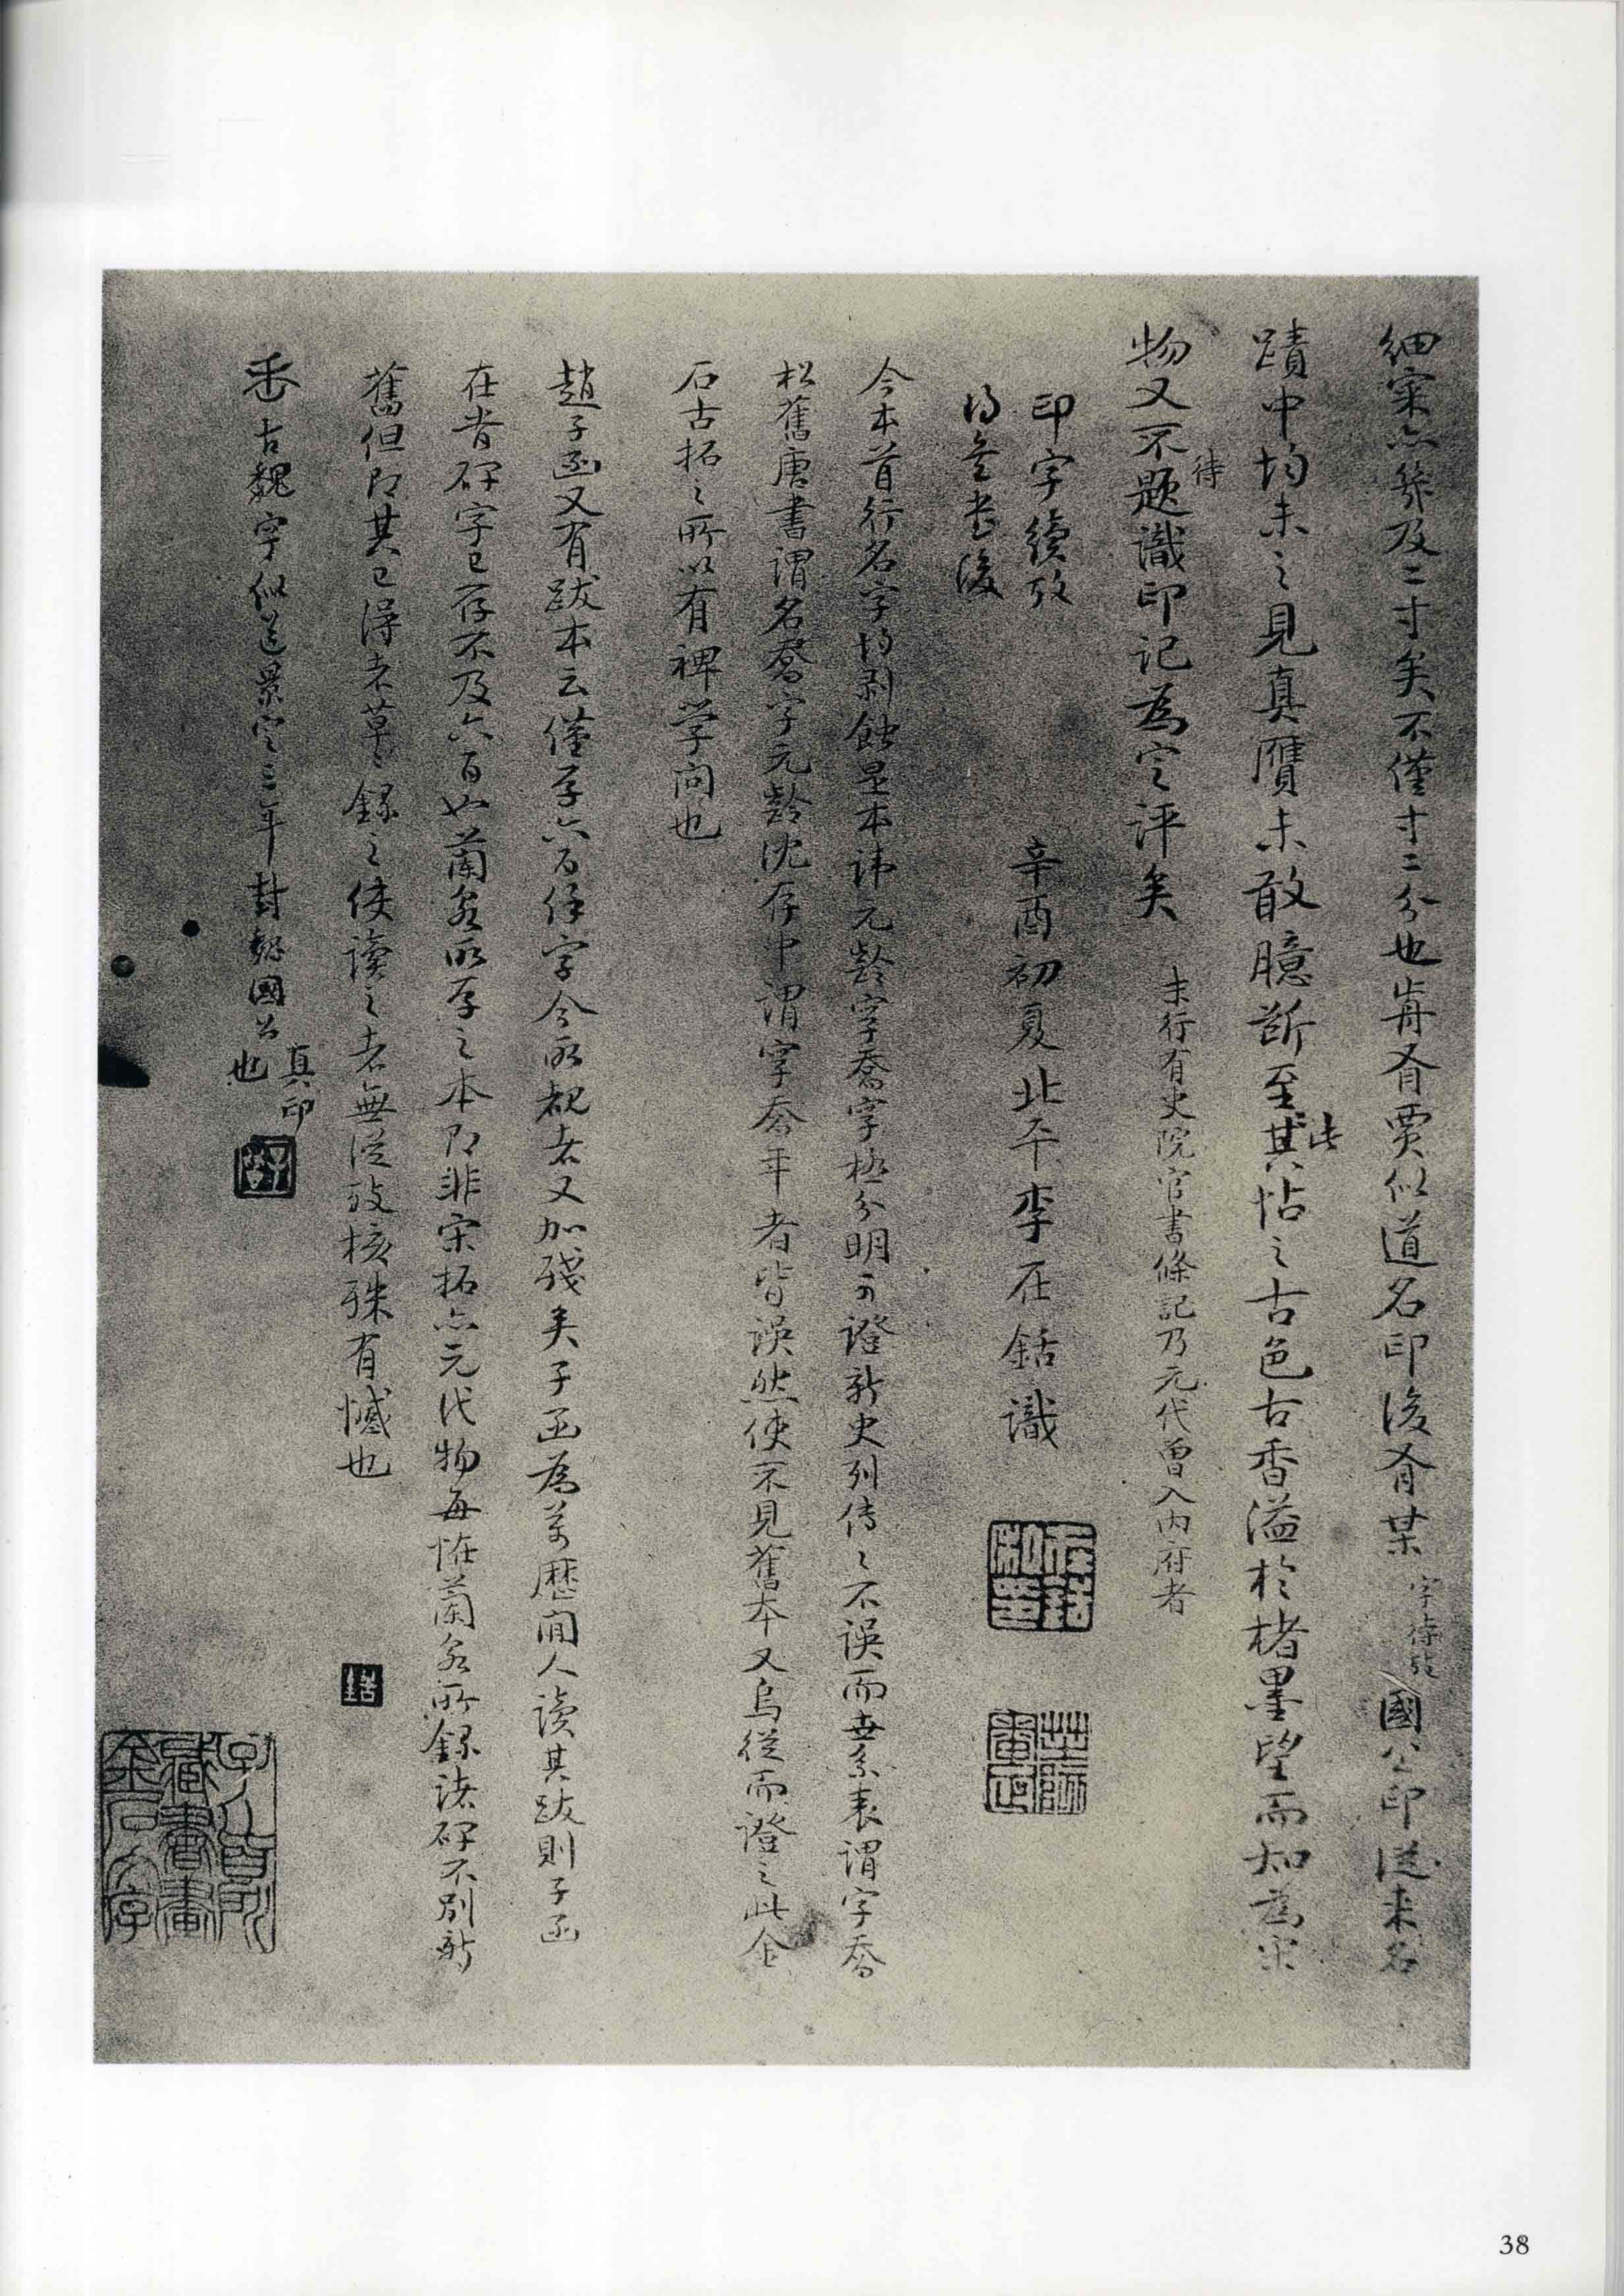 細案亦幾及二寸矣不僅寸二分也冊有賈似道名印後有某字待攷國公印從來名
蹟中均未之見真贋未敢臆斷至其此帖之古色古香溢於楮墨望而知為宋
物又不待題識印記為定評矣
末行有史院官書條記乃元代曾入內府者
印字續攷
得意書後
辛酉初夏北平李在銛識
今本首行名字均剥蝕是本諱元齡字喬字極分明可證新史列傳之不誤而世系表謂字喬
松舊唐書謂名喬字元齡沈存中謂字喬年者皆誤然使不見舊本又烏從而證之此金
石古拓之所以有裨学问也
趙子函又有跋本云僅存六百餘字今所觀者又加殘矣子函為萬歷間人讀其跋則子函
在時碑字已存不及六百也蘭泉所存之本即非宋拓亦元代物每怪蘭泉所錄諸碑不別新
舊但即其已得者草草錄之使讀之者無從攷核殊有憾也
古魏字似道景定三年封魏國公真印也
銛
38